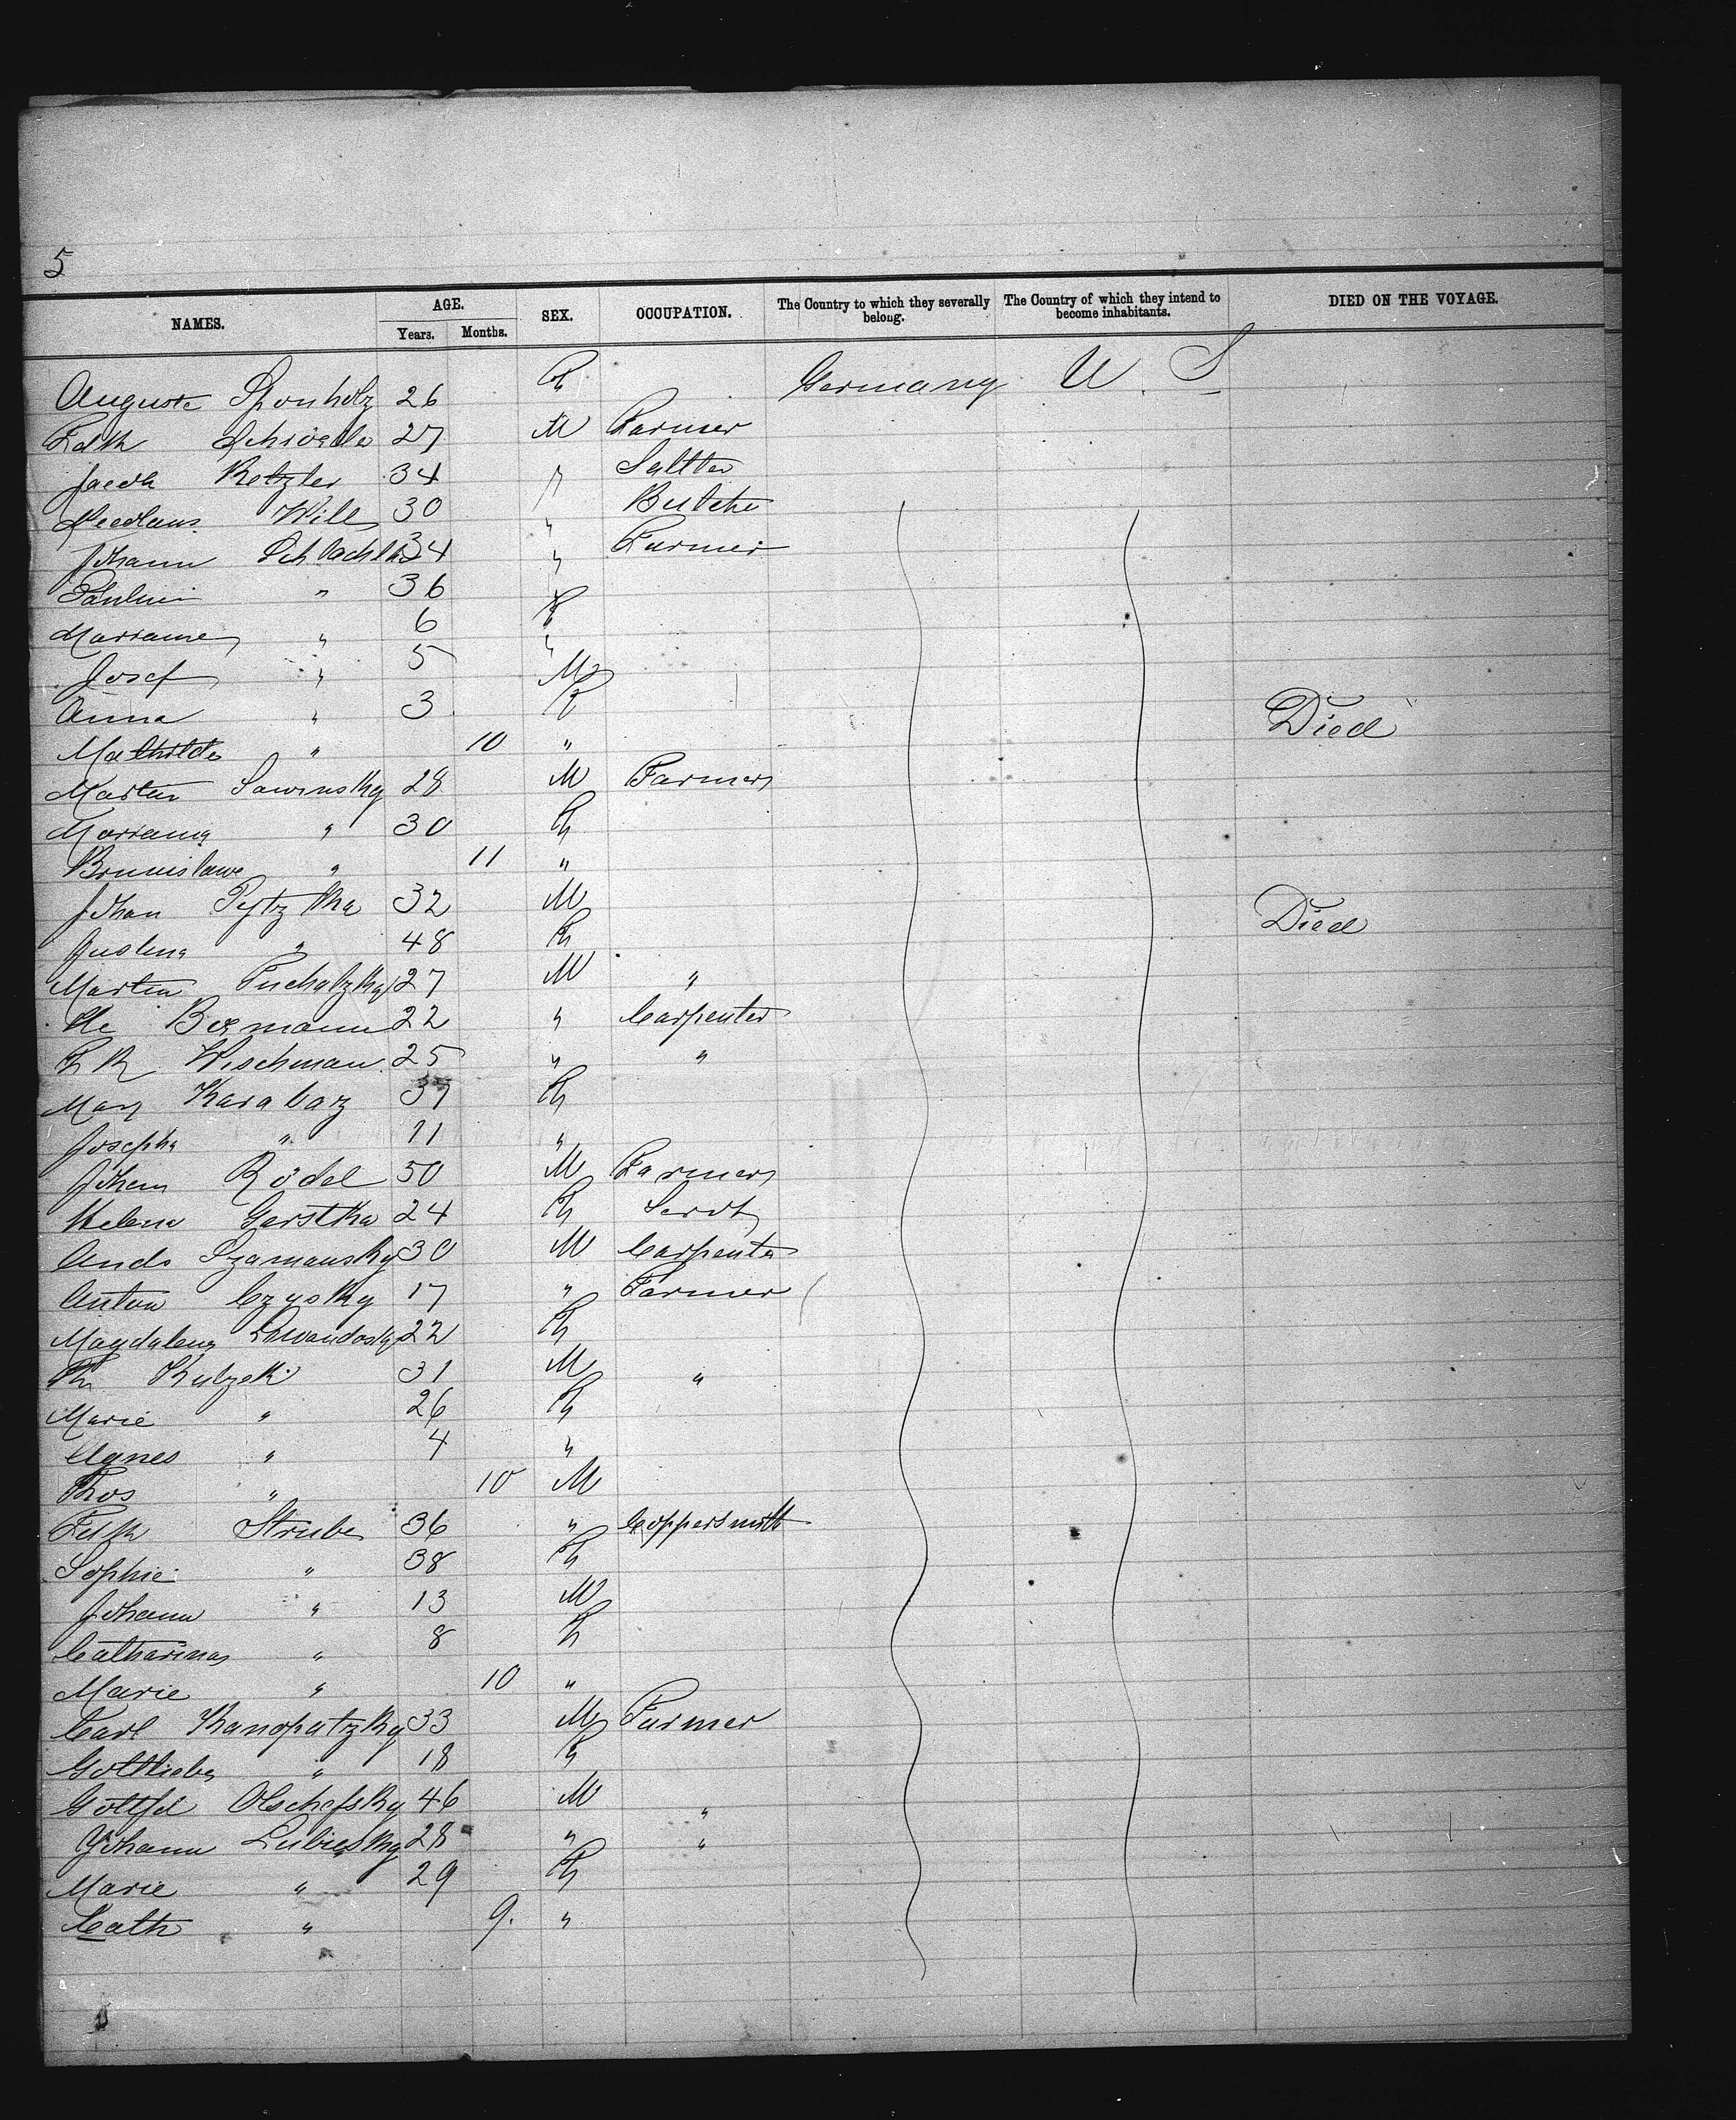 5
NAMES. AGE. Years. Months. SEX. OCCUPATION. The Country to which they severally belong. The Country of which they intend to become inhabitants. DIED ON THE VOYAGE.
Auguste Sponholz 26 F Germany U. S
27 M Farmer
Jacob Retzler 34 "
Will 30 " Butche
Johann 34 " Farmer
" 36 F
Marianne " 6 "
Josef " 5 M
Anna " 3 F Died
Mathilde " 10 "
Martin Sawinsky 28 M Farmer
Marianna " 30 F
Bronislawe " 11 "
Johan 32 M Died
" 48 F
Martin 27 M "
Bormann 22 " Carpenter
Wischman 25 " "
Mary Karabaz 37 F
Josepha " 11 "
Johann Rödel 50 M Farmer
Helene Gerstka 24 F Servt
Szamansky 30 M Carpenter
Anton Czysky 17 " Farmer
Magdalena Lewandosky 22 F
31 M "
Marie " 26 F
Agnes " 4 "
Thos " 10 M
Strube 36 " Coppersmith
Sophie " 38 F
Johann " 13 M
Catharina " 8 F
Marie " 10 "
Carl Kanopatzky 33 M Farmer
Gottliebe " 18 F
Gottfd Olschefsky 46 M "
Johann Lubiesky 28 " "
Marie " 29 F
Cath " 9. "